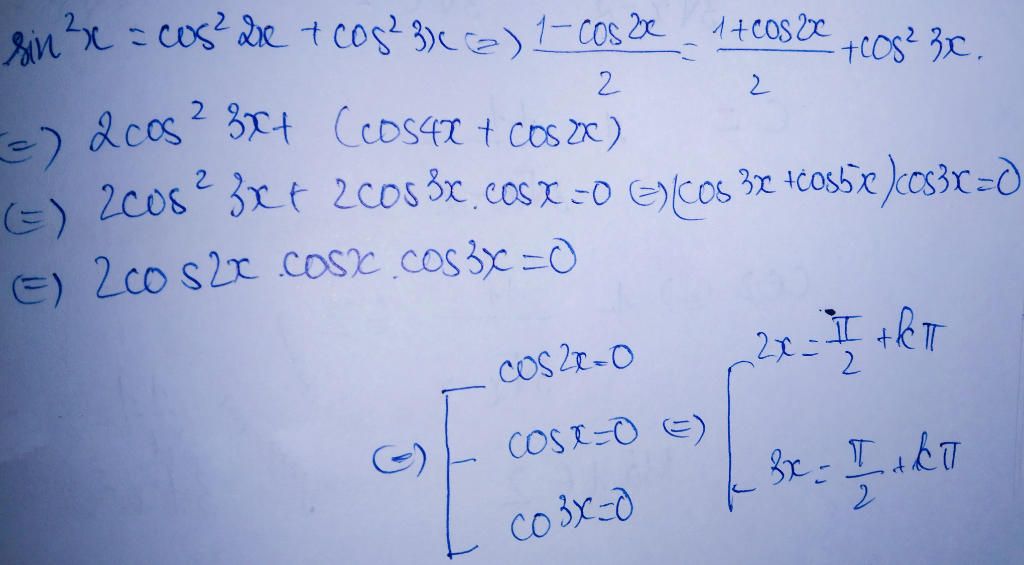 sin²x = cos² 2x + cos² 3x (=) (1-cos2x)/2 = (1+cos2x)/2 + cos² 3x.
(=) 2cos² 3x + (cos4x + cos2x)
(=) 2cos² 3x + 2cos3x.cosx=0 (=) (cos 3x +cos5x)cos3x=0
(=) 2cos2x.cosx.cos3x=0
(=) [ cos2x=0
cosx=0
co3x=0
(=) [ 2x = π/2 + kπ
3x = π/2 + kπ